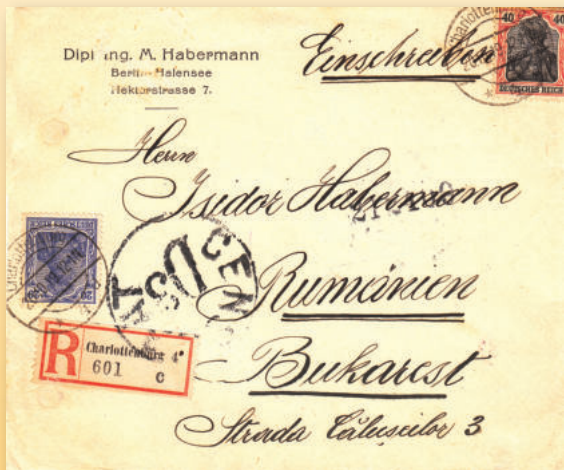 Dipl ing. M. Habermann
Berlin-Halensee
Hektorstrasse 7.
Einschreiben
40 40
DEUTSCHES REICH
Herrn
Isidor Habermann
Rumänien
Bukarest
Strada Căluseilor 3
20
CEN
D
R
Charlottenburg 4
601 c